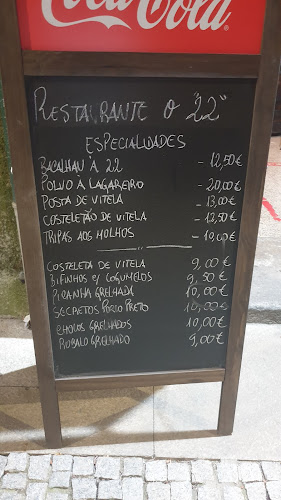 Coca-Cola
RESTAURANTE O "22"
ESPECIALIDADES
BACALHAU À 22 - 12,50€
POLVO À LAGAREIRO - 20,00€
POSTA DE VITELA - 13,00€
COSTELETÃO DE VITELA - 12,50€
TRIPAS AOS MOLHOS - 10,00€
COSTELETA DE VITELA 9,00€
BIFINHOS C/ COGUMELOS 9,50€
PICANHA GRELHADA 10,00€
SECRETOS PORCO PRETO 10,00€
CHOCOS GRELHADOS 10,00€
ROBALO GRELHADO 9,00€